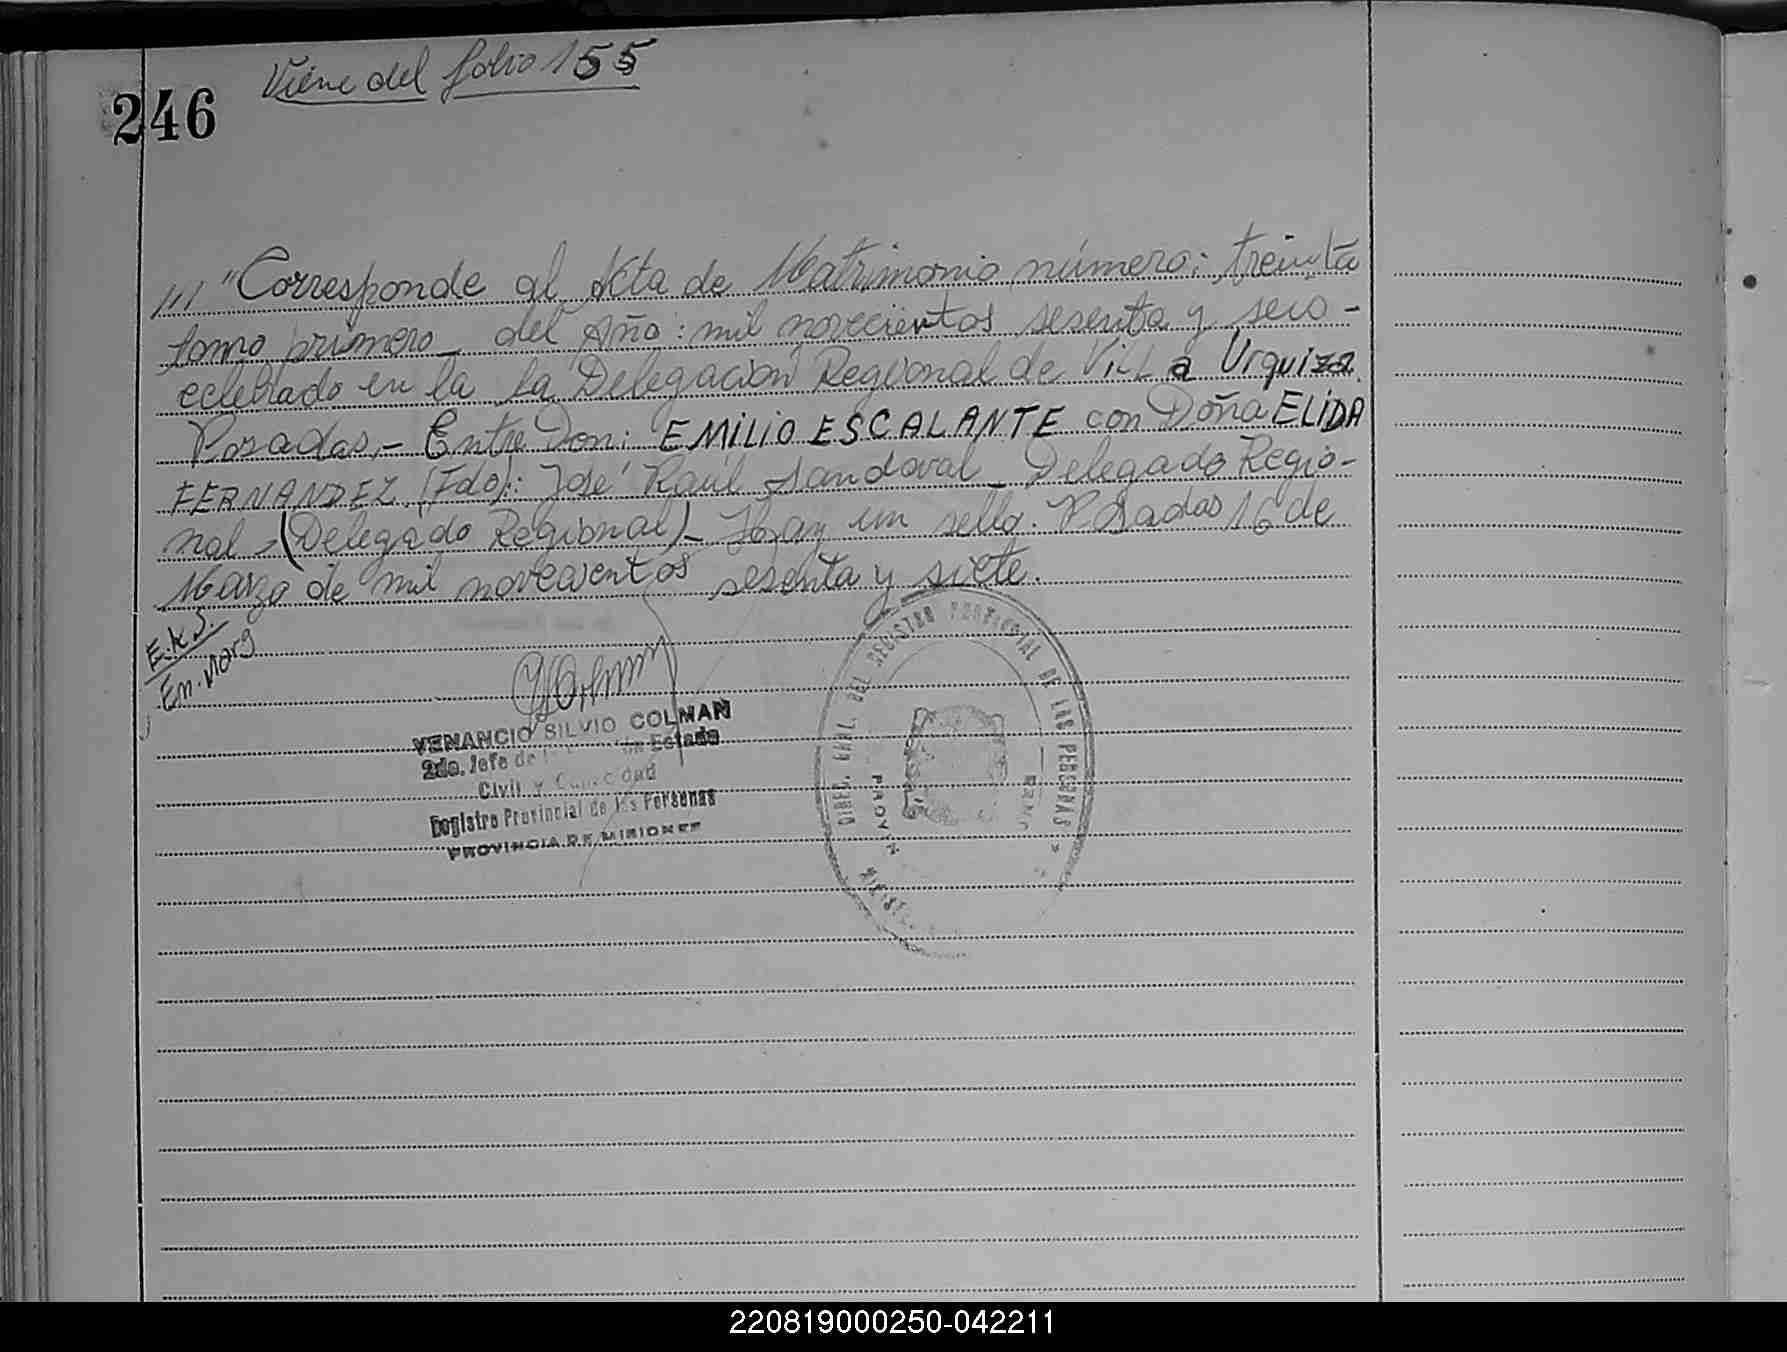 Viene del folio 155
246
/// "Corresponde al Acta de Matrimonio número: treinta
tomo primero_ del Año: mil novecientos sesenta y seis -
eclebrado en la la Delegación Regional de Villa Urquiza
Posadas.- Entre Don: EMILIO ESCALANTE con Doña ELIDA
FERNANDEZ. (Fdo): José Raúl Sandoval_ Delegado Regio-
nal - (Delegado Regional)_ Hay un sello. Posadas 16 de
Marzo de mil novecientos sesenta y siete.
E.K.S.
En. Marg
VENANCIO SILVIO COLMAN
2do. Jefe de Estado
Civil y Capacidad
Registro Provincial de las Personas
PROVINCIA DE MISIONES
DIREC. GRAL. DEL REGISTRO PROVINCIAL DE LAS PERSONAS
PROV
220819000250-042211